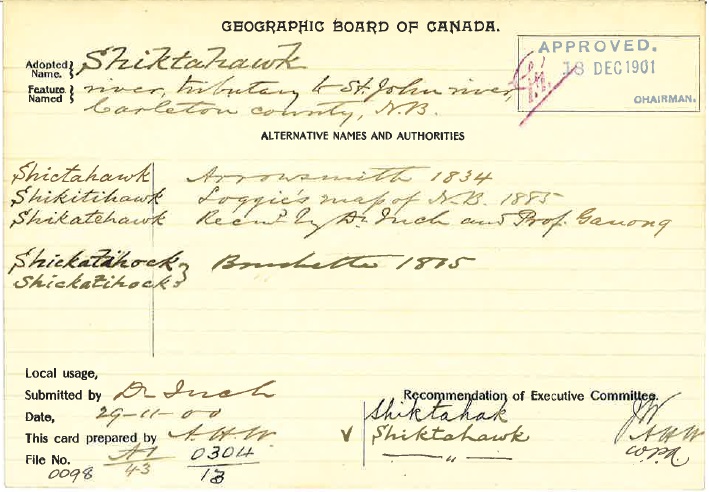 GEOGRAPHIC BOARD OF CANADA.
Adopted Name. } Shiktahawk
Feature Named } river, tributary to St. John river,
Carleton county, N.B.
APPROVED.
18 DEC 1901
CHAIRMAN.
ALTERNATIVE NAMES AND AUTHORITIES
Shictahawk Arrowsmith 1834
Shikitihawk Loggie's map of N.B. 1885
Shikatehawk Recm.d by Dr Inch and Prof. Ganong
Shickatahock } Bouchette 1815
Shickatihock }
Local usage,
Submitted by Dr Inch
Date, 29-11-00
This card prepared by A.H.W.
File No. A1/43 0304/13
0098
Recommendation of Executive Committee.
Shiktahak
v Shiktahawk
— " —
JW
A H W